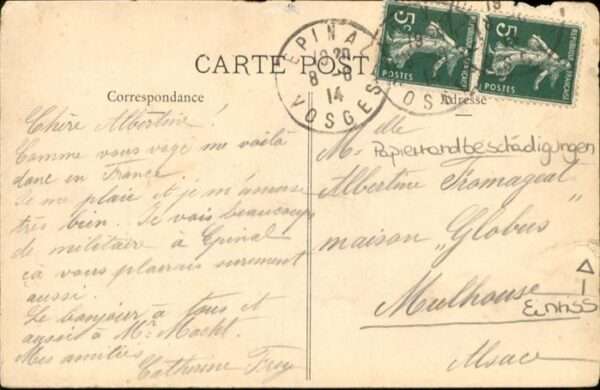 CARTE POSTALE
EPINAL
19 20
8 - 8
14
VOSGES
5c
POSTES
REPUBLIQUE FRANÇAISE
5c
POSTES
REPUBLIQUE FRANÇAISE
Correspondance
Adresse
Chère Albertine!
Comme vous voge me voilà
danc en France.
Je me plaie et je m'amuse
très bien. Je vois beaucoup
de militaire à Epinal
ça vous plairais surement
aussi.
Le bonjour à tous et
aussi à Mr.
Mes amitiés
Catherine Frey
Mlle
Papierrandbeschädigungen
Albertine Fromageat
maison „Globus"
Mulhouse
Einriss
Alsace